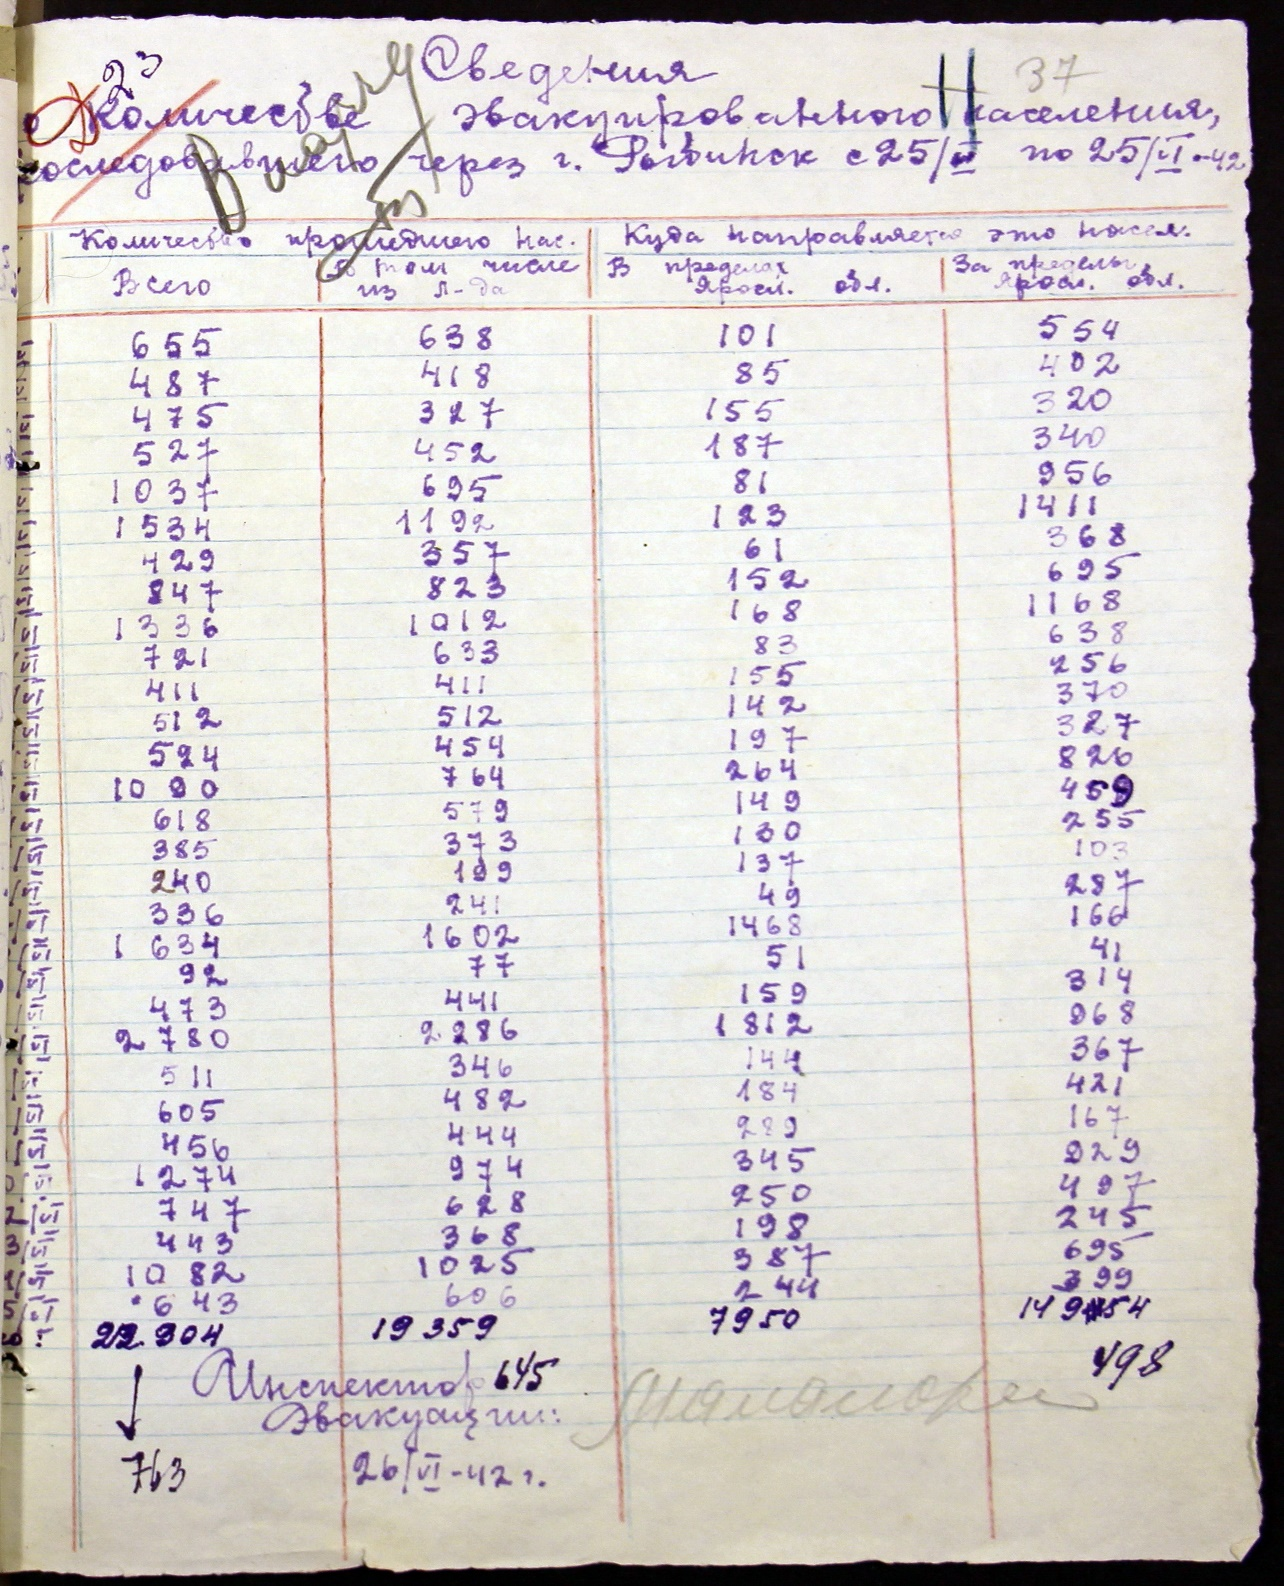 23
Сведения
37
о количестве эвакуированного населения,
последовавшего через г. Рыбинск с 25/V по 25/VI-42
Количество прошедшего нас. Куда направляется это насел.
Всего В том числе из Л-да В пределах Яросл. обл. За пределы Яросл. обл.
655 638 101 554
487 418 85 402
475 327 155 320
527 452 187 340
1037 695 81 956
1534 1192 123 1411
429 357 61 368
847 823 152 695
1336 1012 168 1168
721 633 83 638
411 411 155 256
512 512 142 370
524 454 197 327
1090 764 264 826
618 579 149 459
385 373 130 255
240 199 137 103
336 241 49 287
1634 1602 1468 166
92 77 51 41
473 441 159 314
2780 2286 1812 968
511 346 144 367
605 482 184 421
456 444 289 167
1274 974 345 929
747 628 250 497
443 368 198 245
1082 1025 387 695
643 606 244 399
22.904 19359 7950 14954
Инспектор 645 498
Эвакуации:
763 26/VI-42 г.